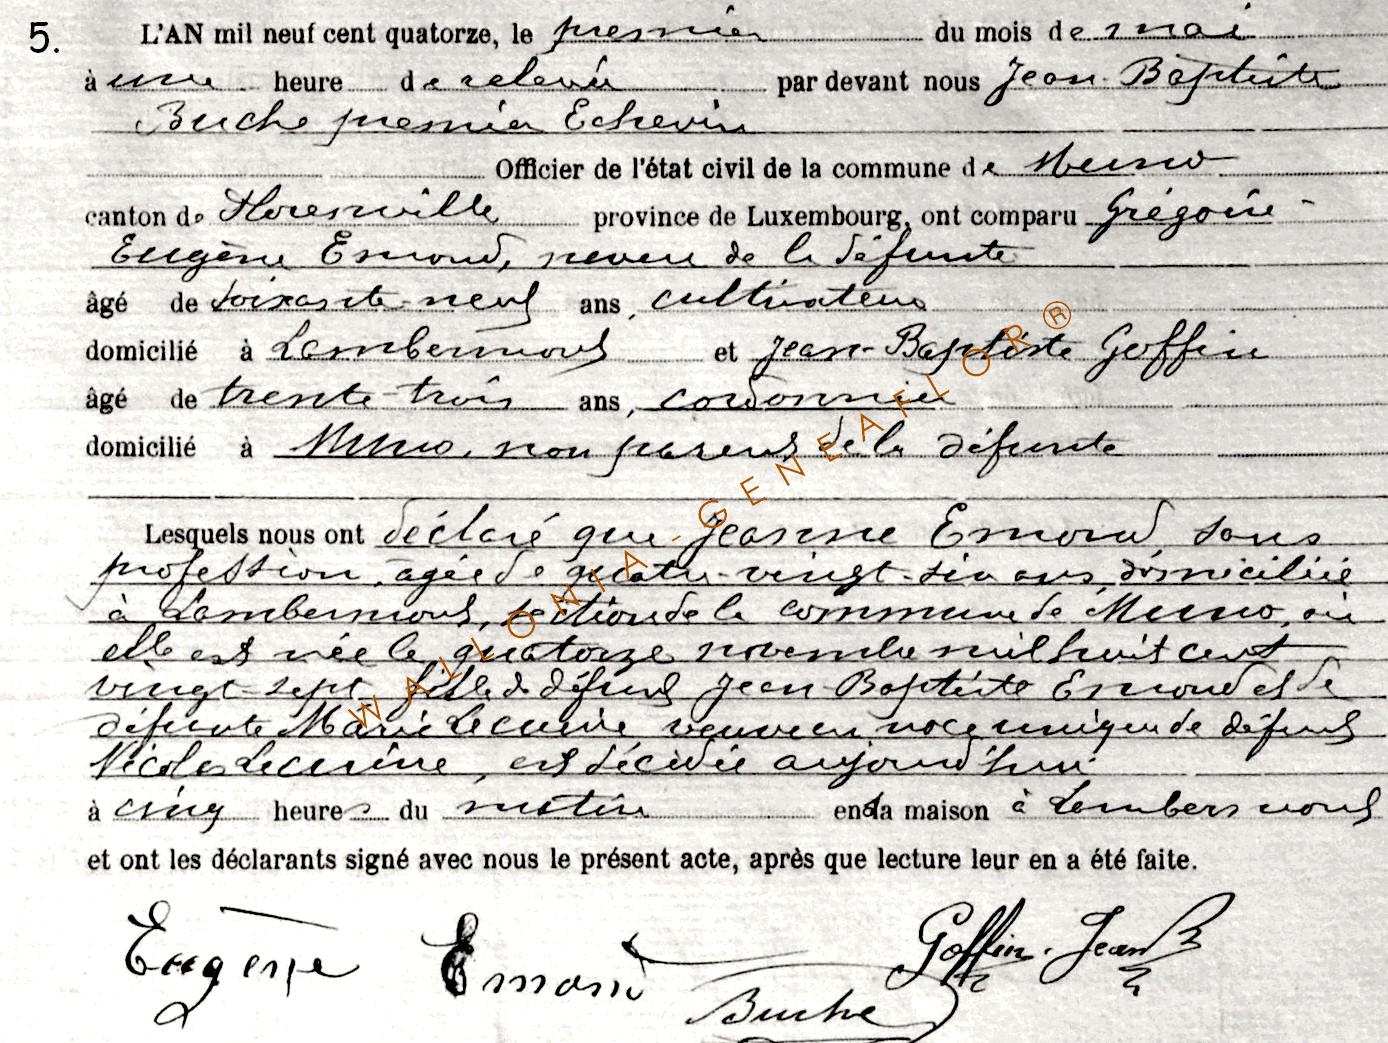 5.
L'AN mil neuf cent quatorze, le premier du mois de mai
à une heure de relevée par devant nous Jean-Baptiste
Buche premier Echevin
Officier de l'état civil de la commune de Muno
canton de Florenville province de Luxembourg, ont comparu Grégoire-
Eugène Emond, neveu de la défunte
âgé de soixante-neuf ans, cultivateur
domicilié à Lambermont et Jean-Baptiste Goffin
âgé de trente-trois ans, cordonnier
domicilié à Muno, non parent de la défunte
Lesquels nous ont déclaré que Jeanne Emond, sans
profession, agée de quatre-vingt-six ans, domiciliée
à Lambermont, section de la commune de Muno, où
elle est née le quatorze novembre mil huit cent
vingt-sept, fille de défunt Jean Baptiste Emond et de
défunte Marie Lecuire veuve en noce unique de défunt
Nicolas Lecuire, est décédée aujourd'hui
à cinq heures du matin en la maison à Lambermont
et ont les déclarants signé avec nous le présent acte, après que lecture leur en a été faite.
Eugène Emond Goffin-Jean B
Buche
WALLONIA-GENEAFLOR®